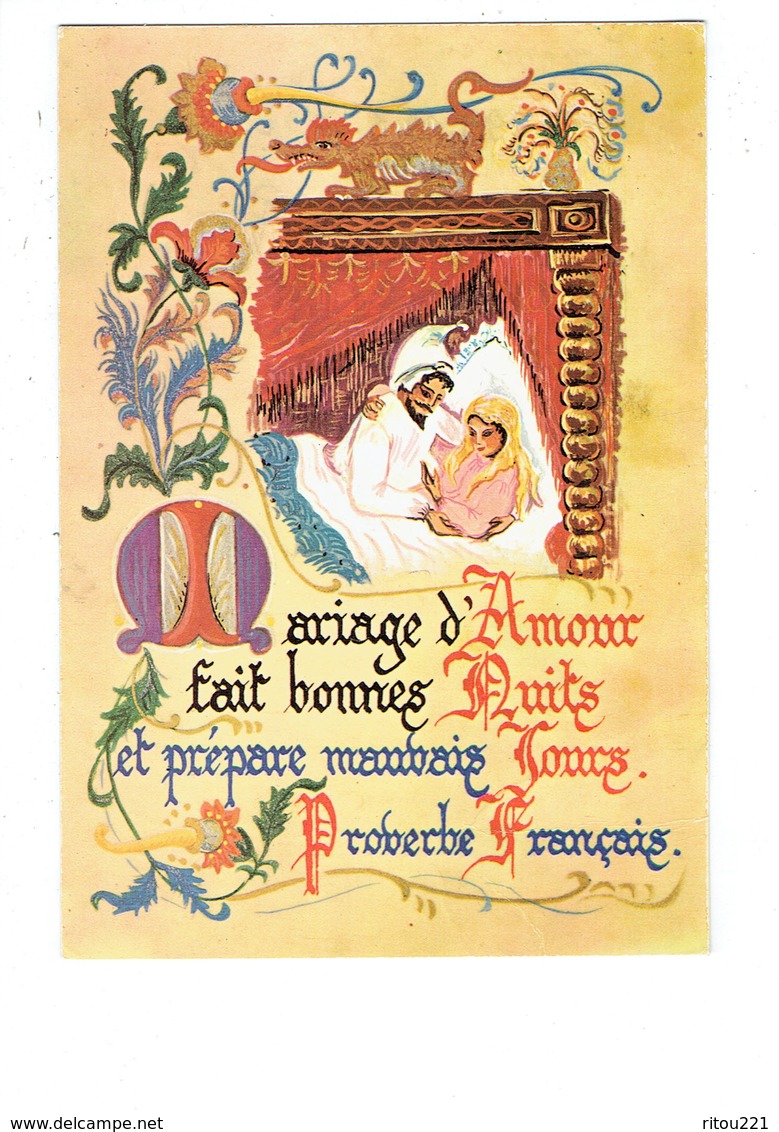 Mariage d'Amour
fait bonnes Nuits
et prépare mauvais Jours.
Proverbe Français.
www.delcampe.net
ritou221